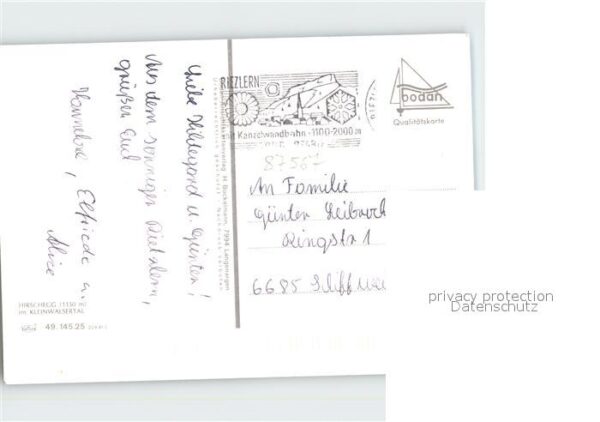 Liebe Hildegard u. Günter!
Aus dem sonnigen Riezlern,
grüßen Euch
Hannelore, Elfriede u.
Alice
HIRSCHEGG (1130 m)
im KLEINWALSERTAL
49.145.25
RIEZLERN
mit Kanzelwandbahn · 1100-2000 m
bodan
Qualitätskarte
87567
An Familie
Günter
Ringstr 1
6685 Schiffwei
privacy protection
Datenschutz